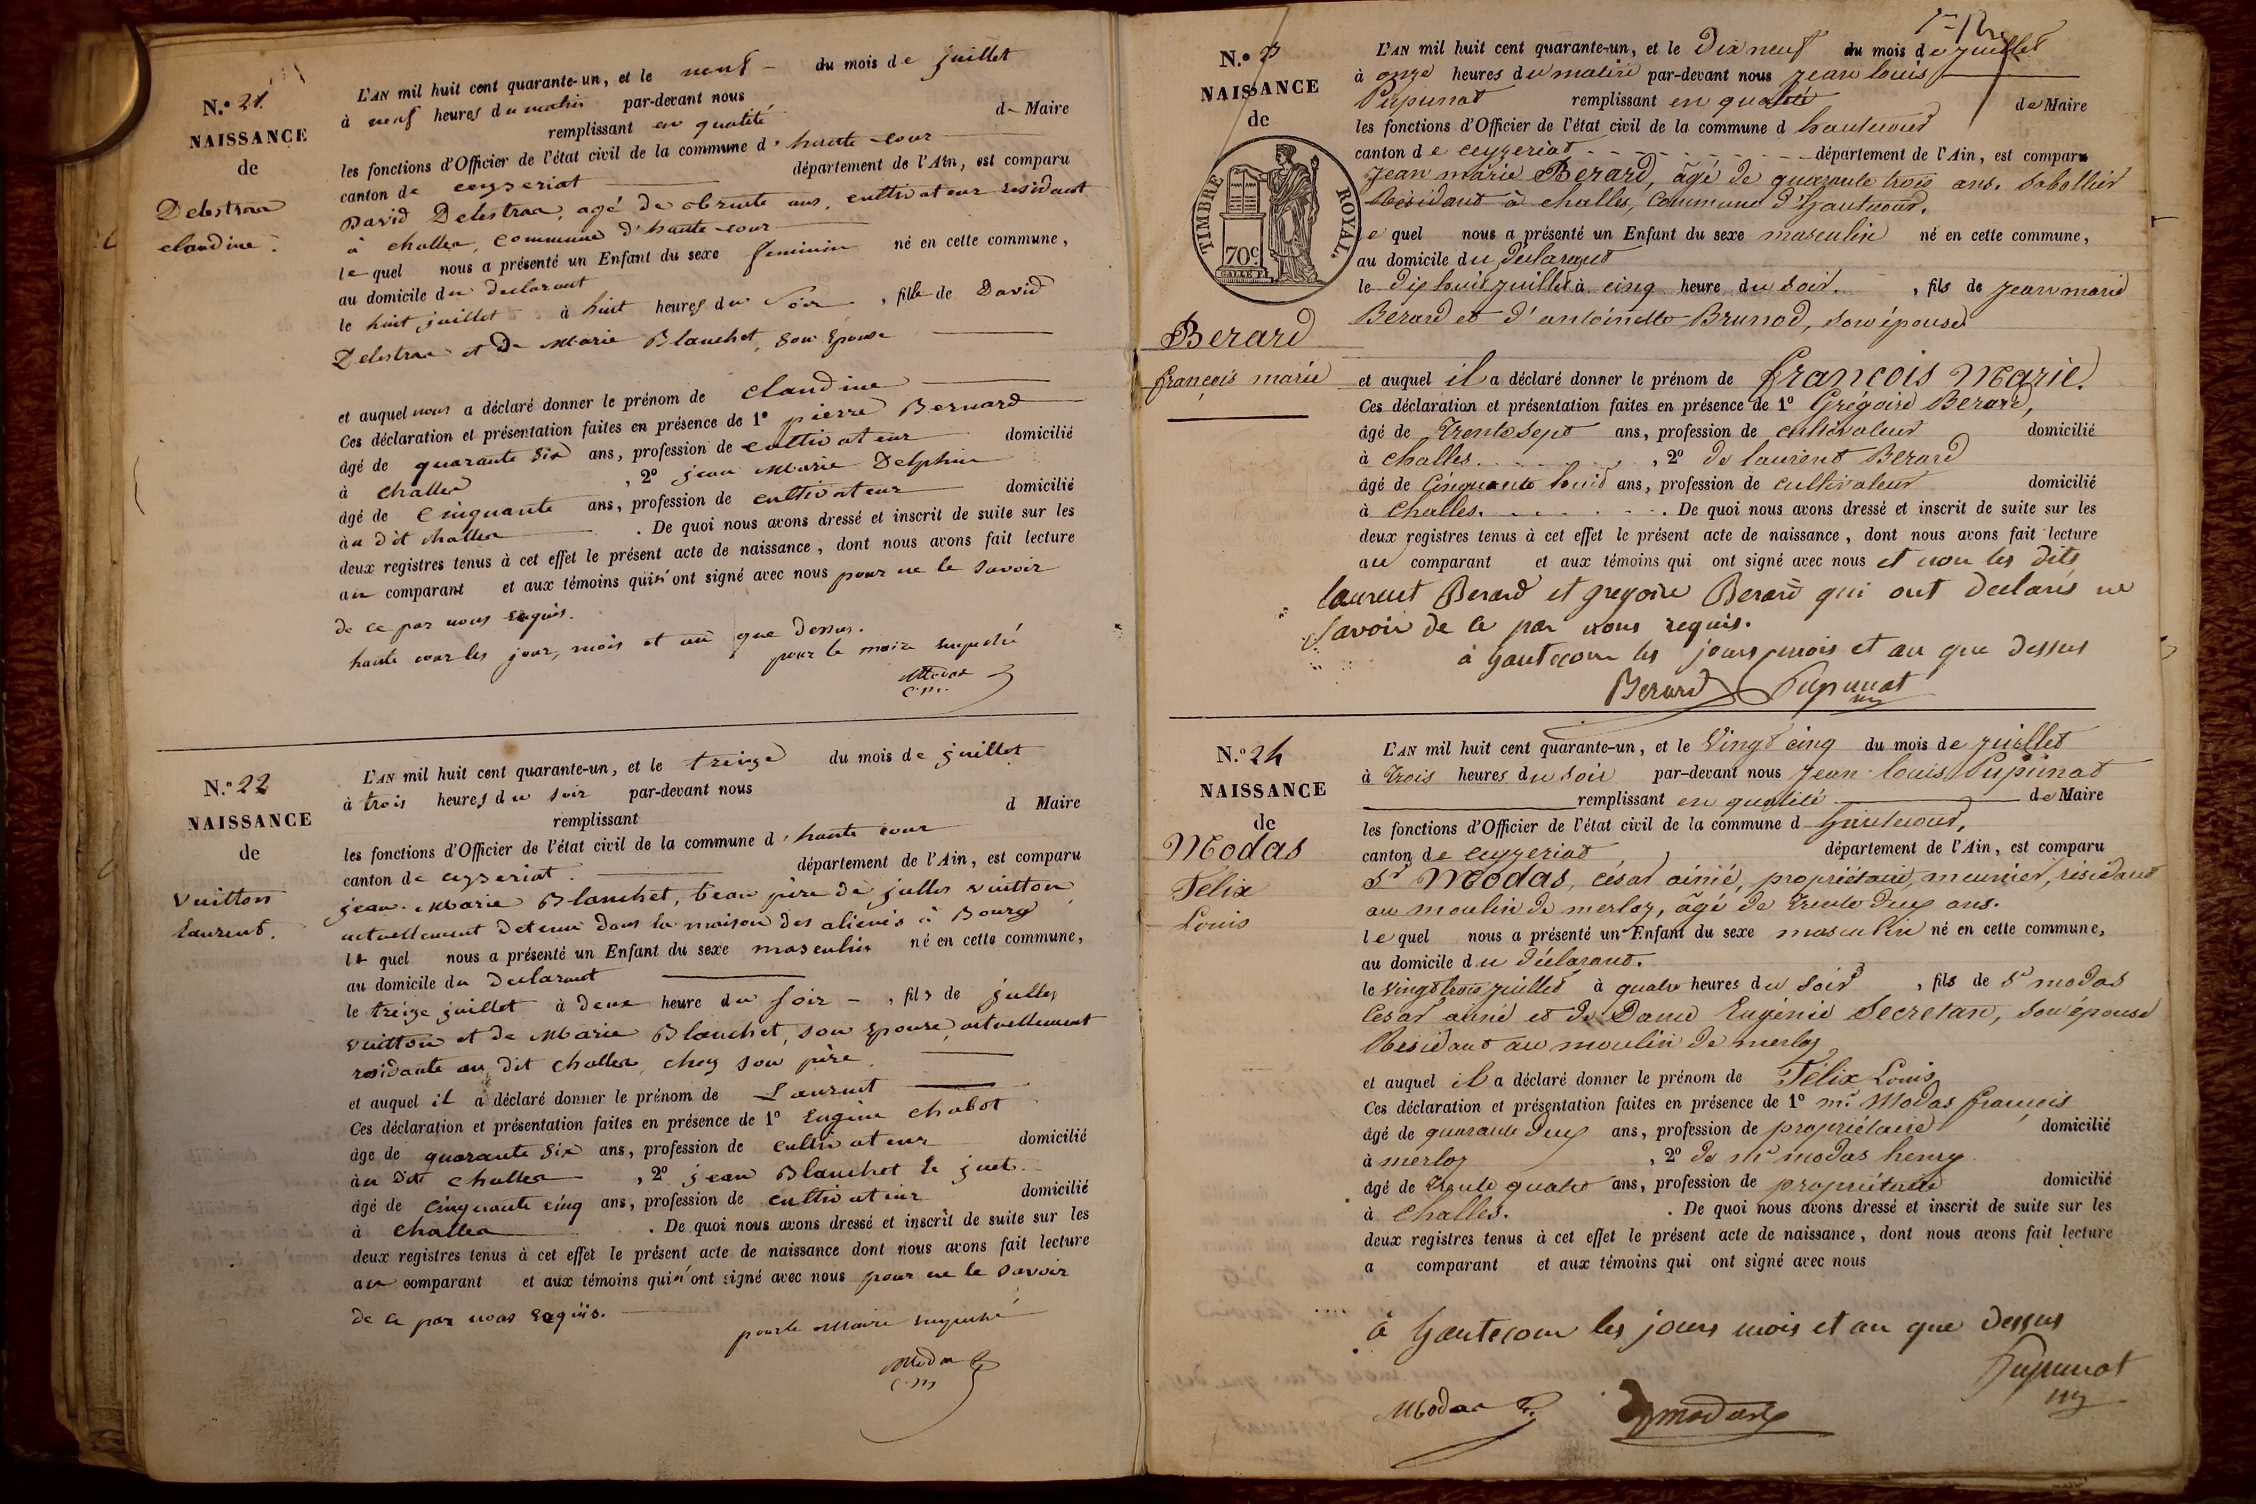 N.º 21.
NAISSANCE
de
Delestrae
claudine.
L'AN mil huit cent quarante-un, et le neuf du mois de juillet
à neuf heures du matin par-devant nous
remplissant en qualité de Maire
les fonctions d'Officier de l'état civil de la commune d' haute cour
canton de ceyzeriat département de l'Ain, est comparu
David Delestrae, agé de trente ans, cultivateur residant
à challea, commune d'haute-cour
le quel nous a présenté un Enfant du sexe feminin né en cette commune,
au domicile du declarant
le huit juillet à huit heures du soir, fille de David
Delestrae et de Marie Blanchet, son Epouse
et auquel nous a déclaré donner le prénom de claudine
Ces déclaration et présentation faites en présence de 1º pierre Bernard
âgé de quarante six ans, profession de cultivateur domicilié
à challea, 2º jean Marie Delphin
âgé de cinquante ans, profession de cultivateur domicilié
au dit challea. De quoi nous avons dressé et inscrit de suite sur les
deux registres tenus à cet effet le présent acte de naissance, dont nous avons fait lecture
au comparant et aux témoins qui n'ont signé avec nous pour ne le savoir
de ce par nous requis.
haute cour les jour, mois et an que dessus.
pour le maire empeché
c.m.
N.º 22
NAISSANCE
de
Vuitton
Laurent.
L'AN mil huit cent quarante-un, et le treize du mois de juillet
à trois heures du soir par-devant nous
remplissant d Maire
les fonctions d'Officier de l'état civil de la commune d' haute cour
canton de ceyzeriat. département de l'Ain, est comparu
jean-Marie Blanchet, beau père de julles vuitton
actuellement detenu dans la maison des alienés à Bourg
le quel nous a présenté un Enfant du sexe masculin né en cette commune,
au domicile du declarant
le treize juillet à deux heure du soir, fils de julles
vuitton et de Marie Blanchet, son Epouse, actuellement
residante au dit challea, chez son père
et auquel il a déclaré donner le prénom de Laurent
Ces déclaration et présentation faites en présence de 1º Eugène chabot
âge de quarante six ans, profession de cultivateur domicilié
au Dit challea, 2º jean Blanchet le juet
âgé de cinquante cinq ans, profession de cultivateur domicilié
à challea. De quoi nous avons dressé et inscrit de suite sur les
deux registres tenus à cet effet le présent acte de naissance dont nous avons fait lecture
au comparant et aux témoins qui n'ont signé avec nous pour ne le savoir
de ce par nous requis.
pour le Maire empeché
Modas
c.m
N.º
NAISSANCE
de
TIMBRE ROYAL.
70c
Berard
françois marie
L'AN mil huit cent quarante-un, et le Dix neuf du mois de juillet
à onze heures du matin par-devant nous jean louis
Pupunat remplissant en qualité de Maire
les fonctions d'Officier de l'état civil de la commune d hautecour
canton de ceyzeriat département de l'Ain, est comparu
jean marie Berard, âgé de quarante trois ans, sabottier
Résidant à challes, commune d'hautecour.
le quel nous a présenté un Enfant du sexe masculin né en cette commune,
au domicile du déclarant
le Dix huit juillet à cinq heure du soir., fils de jean marie
Berard et d'antoinette Brunod, son épouse
et auquel il a déclaré donner le prénom de françois Marie.
Ces déclaration et présentation faites en présence de 1º Grégoire Berard,
âgé de trente sept ans, profession de cultivateur domicilié
à challes, 2º de laurent Berard
âgé de cinquante huit ans, profession de cultivateur domicilié
à challes. De quoi nous avons dressé et inscrit de suite sur les
deux registres tenus à cet effet le présent acte de naissance, dont nous avons fait lecture
au comparant et aux témoins qui ont signé avec nous et non les dits
laurent Berard et gregoire Berard qui ont declarés ne
savoir de ce par nous requis.
à hautecour les jours mois et an que dessus
Berard Pupunat
N.º 24
NAISSANCE
de
Modas
Félix
Louis
L'AN mil huit cent quarante-un, et le vingt cinq du mois de juillet
à trois heures du soir par-devant nous jean-louis Pupunat
remplissant en qualité de Maire
les fonctions d'Officier de l'état civil de la commune d hautecour,
canton de ceyzeriat, département de l'Ain, est comparu
Sr Modas, césar ainé, propriétaire, meunier, résidant
au moulin de merloz, âgé de trente deux ans.
le quel nous a présenté un Enfant du sexe masculin né en cette commune,
au domicile du déclarant.
le vingt trois juillet à quatre heures du soir, fils de Sr modas
César ainé et de Dame Eugénie Secretan, son épouse
Résidant au moulin de merloz
et auquel il a déclaré donner le prénom de Félix Louis
Ces déclaration et présentation faites en présence de 1º mr. Modas françois
âgé de quarante deux ans, profession de propriétaire domicilié
à merloz, 2º de mr modas henry
âgé de trente quatre ans, profession de propriétaire domicilié
à challes. De quoi nous avons dressé et inscrit de suite sur les
deux registres tenus à cet effet le présent acte de naissance, dont nous avons fait lecture
a comparant et aux témoins qui ont signé avec nous
à hautecour les jours mois et an que dessus
Pupunat
Modas modas